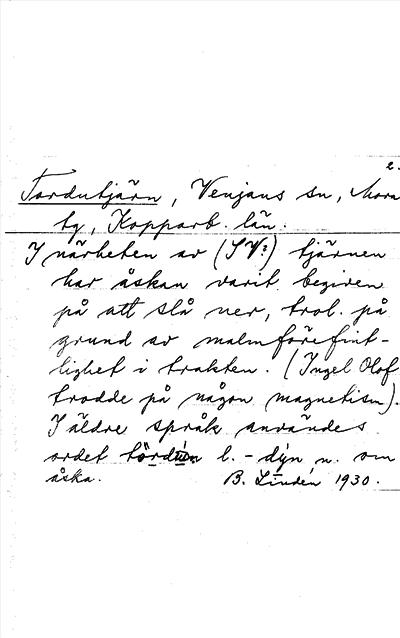 2.
Tordutjärn, Venjans sn, Mora
tg, Kopparb. län.
I närheten av (SV:) tjärnen
har åskan varit begiven
på att slå ner, trol. på
grund av malmförefint-
lighet i trakten. (Ingel Olof
trodde på någon magnetism).
I äldre språk användes
ordet l. -dýn n. om
åska. B. Lindén 1930.